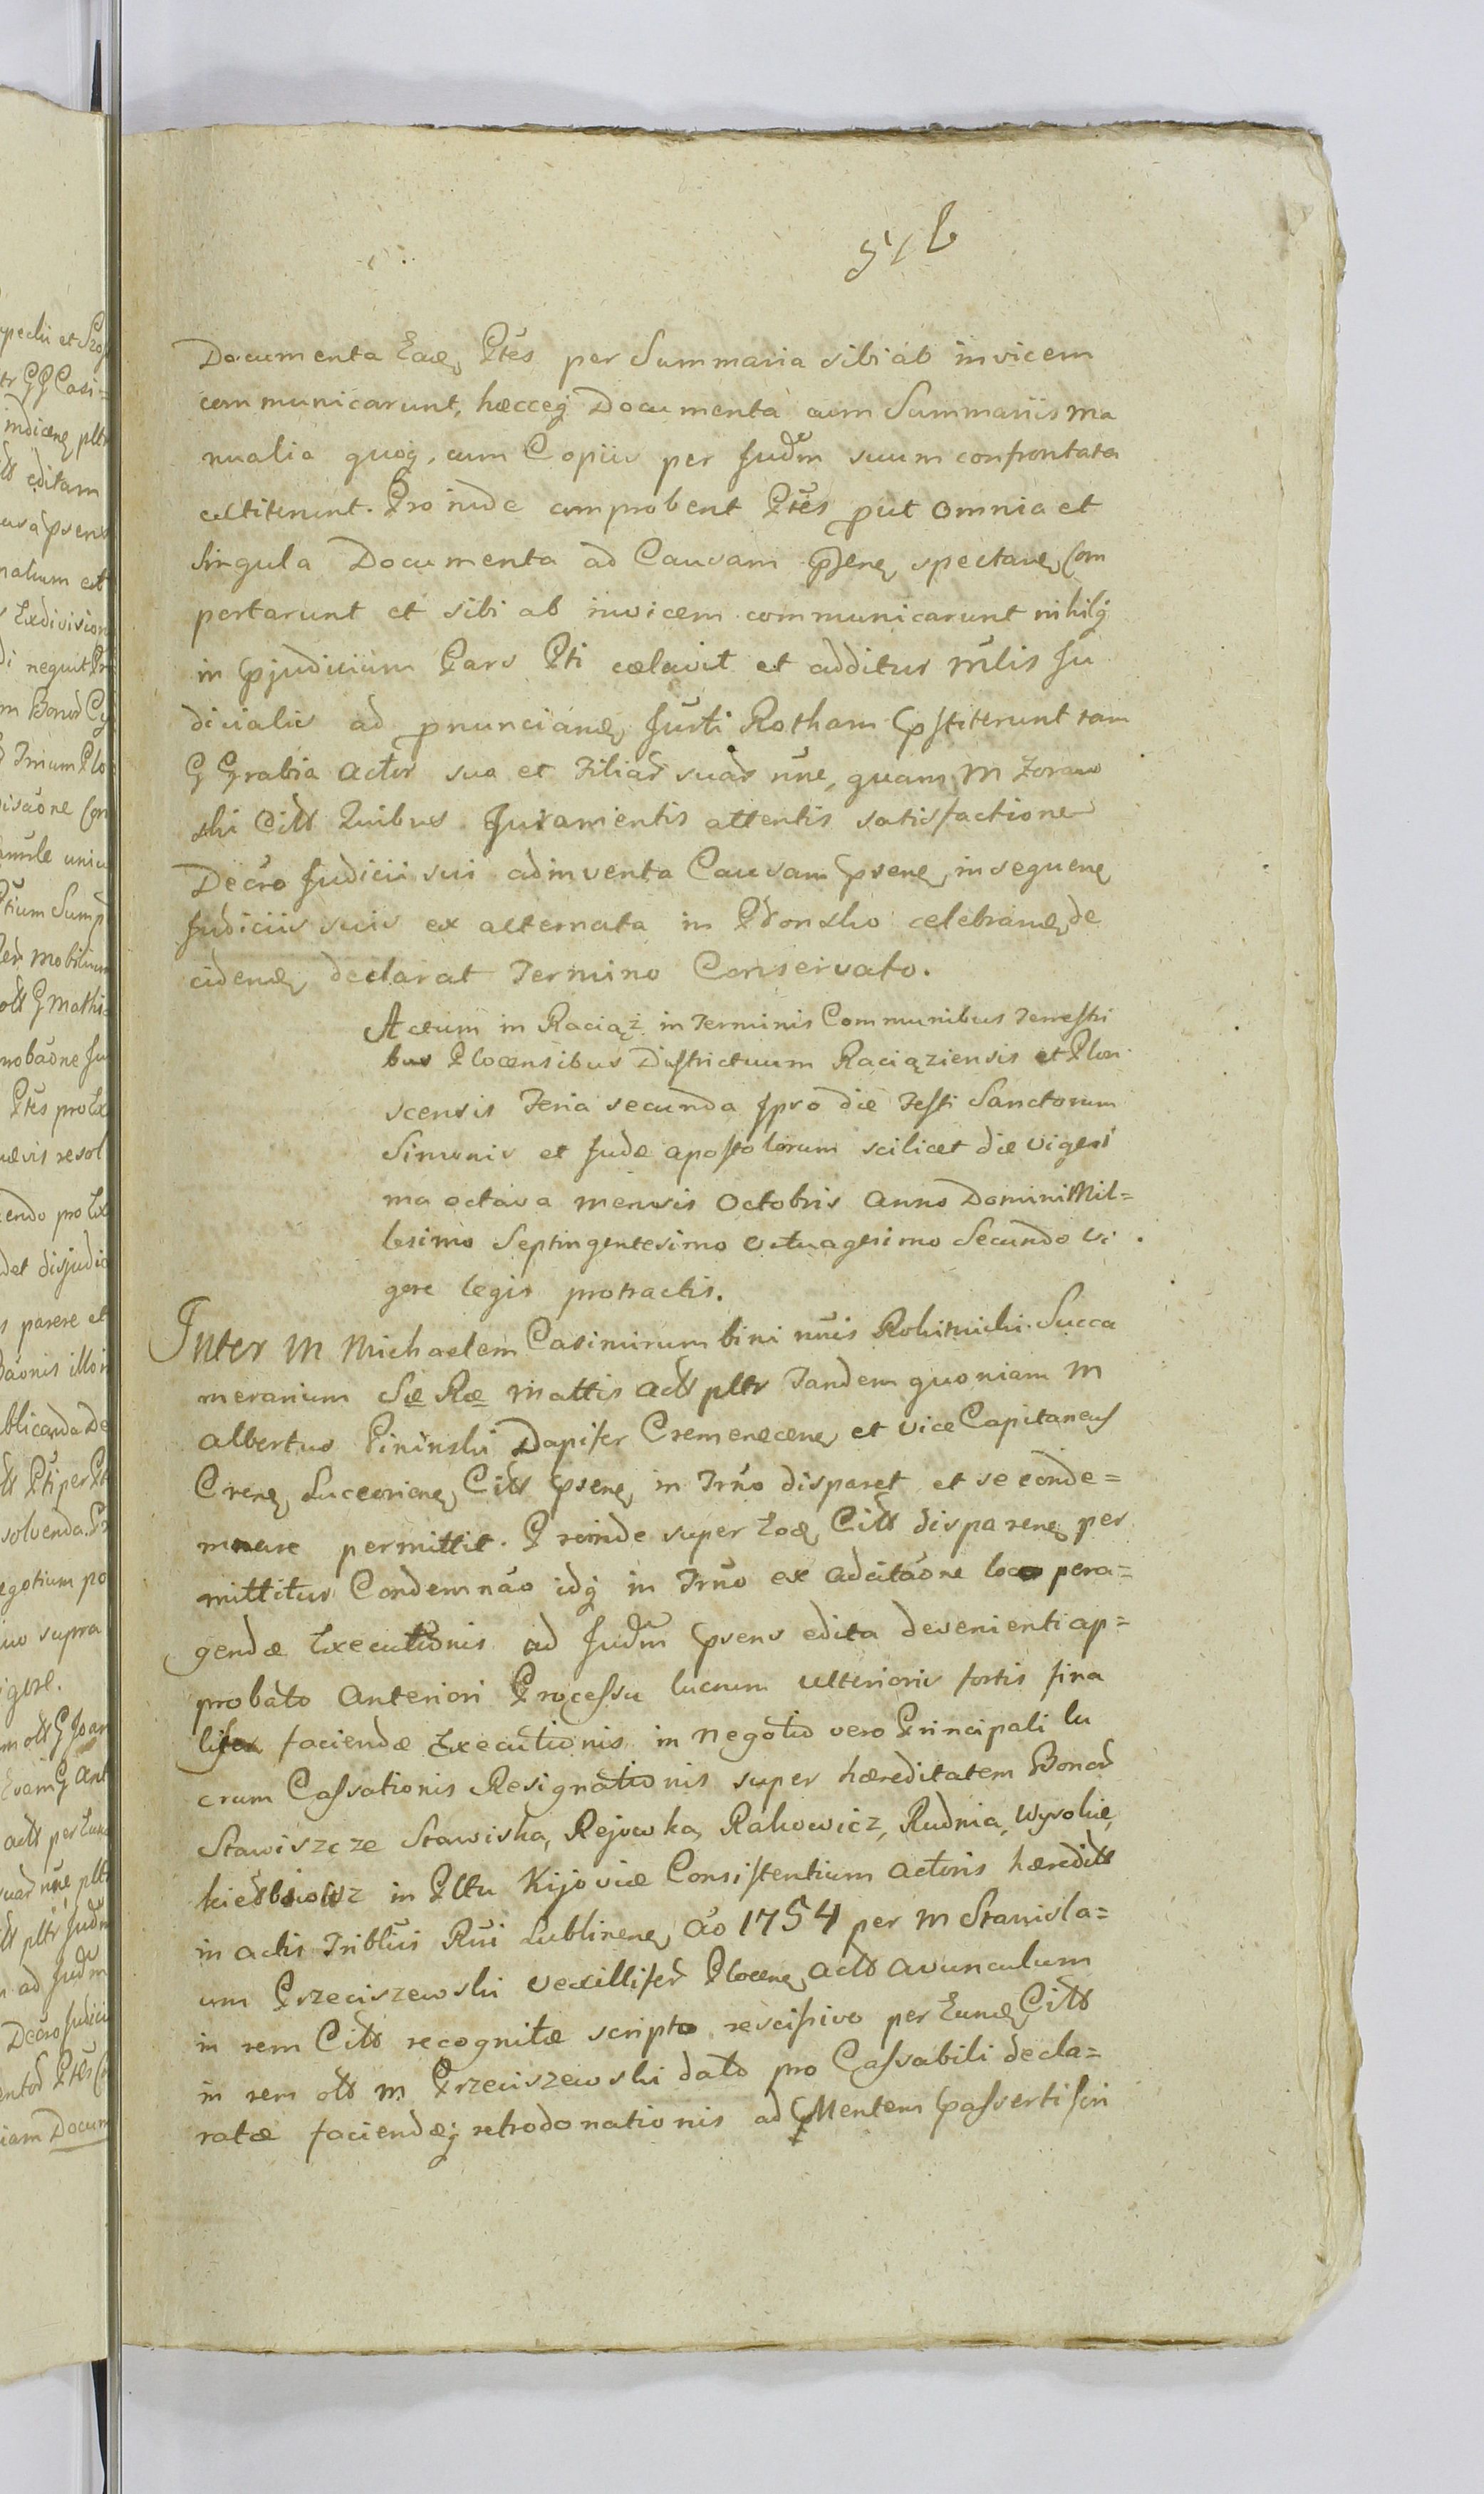 Documenta Eaeq Ptes per Summaria sibi ab invicem
communicarunt, hæcceq Documenta cum Summariis ma
nualia quoq, cum Copiis per Judm suum confrontata
extiterunt. Proinde comprobent Ptes put omnia et
singula Documenta ad Causam psenq spectanq Com
portarunt et sibi ab invicem communicarunt nihilq
in pjudicium Pars Pti cælavit et additur mlis Ju
dicialis ad pnuncianq Jurti Rotham pstiterunt tam
G Grabia Actor suo et Filiar suar nne, quam M Zoraw
ski Citt Quibus Juramentis attentis satisfactione
Decro Judicii sui adinventa Causam psenq in sequenq
Judiciis suis ex alternata in Płonsko celebranq de
cidenq declarat Termino Conservato.
Actum in Raciąż in Terminis Communibus Terrestri
bus Plocensibus Districtuum Raciąziensis et Plon
scensis Feria secunda Ipso die Festi Sanctorum
Simonis et Judæ apostolorum scilicet die vigesi
ma octava mensis Octobris Anno Domini Mil=
lesimo Septingentesimo octuagesimo Secundo vi
gore legis protractis.
Inter M Michaelem Casimirum bini nnis Rokitnicki Succa
merarium Sæ Ræ Mattis Actt pltr Tandem quoniam M
Albertus Pininski Dapifer Cremenecenq et Vice Capitaneus
Crenq Luceorienq Citt psenq in Trno disparet et se conde=
mnare permittit. Proinde super Eoq Citt disparenq per
mittitur Condemnao idq in Trno ex adcitaone loco pera=
gendæ Executionis ad Judm psens edita devenienti ap=
probato Anteriori Processu lucrum ulterioris fortis fina
liter faciendæ Executionis in negotio vero Principali lu
crum Cassationis Resignationis super hæreditatem Bonor
Stawiszcze Stawiska, Rejowka, Rakowicz, Rudnia, Wysokie,
in Pltu Kijoviæ Consistentium actoris hæreditt
in actis Triblūs Rni Lublinenq Ao 1754 per M Stanisla=
um Przeciszewski Vexillifer Plocenq actt avunculum
in rem Citt recognitæ scripto rescissivo per Eunq Citt
in rem ott M Przeciszewski dato pro Cassabili decla=
ratæ faciendæq retrodonationis ad Mentem passerti scri